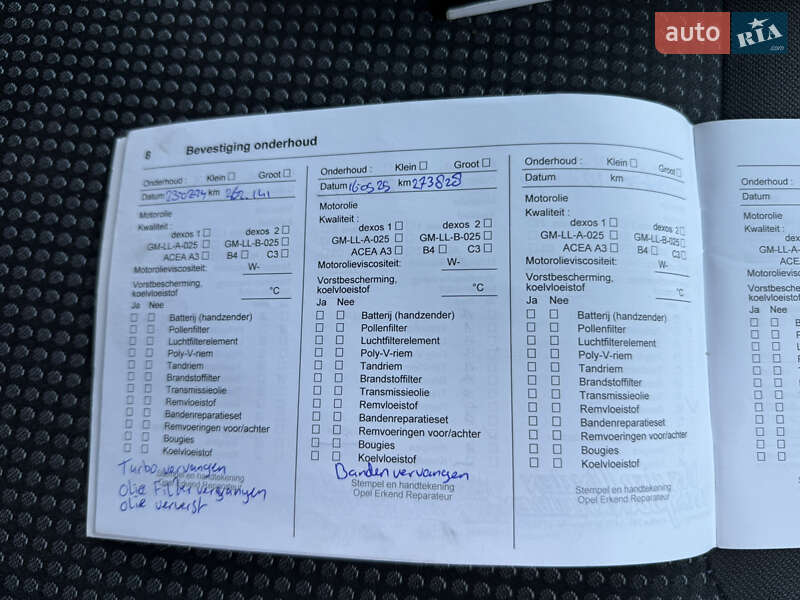 auto RIA
8 Bevestiging onderhoud
Onderhoud : Klein ☐ Groot ☐
Datum 230824 km 262.141
Motorolie
Kwaliteit :
dexos 1 ☐ dexos 2 ☐
GM-LL-A-025 ☐ GM-LL-B-025 ☐
ACEA A3 ☐ B4 ☐ C3 ☐
Motorolieviscositeit: W-
Vorstbescherming,
koelvloeistof °C
Ja Nee
☐ ☐ Batterij (handzender)
☐ ☐ Pollenfilter
☐ ☐ Luchtfilterelement
☐ ☐ Poly-V-riem
☐ ☐ Tandriem
☐ ☐ Brandstoffilter
☐ ☐ Transmissieolie
☐ ☐ Remvloeistof
☐ ☐ Bandenreparatieset
☐ ☐ Remvoeringen voor/achter
☐ ☐ Bougies
☐ ☐ Koelvloeistof
Turbo vervangen
Stempel en handtekening
Opel Erkend Reparateur
olie Filter vervangen
olie ververst
Onderhoud : Klein ☐ Groot ☐
Datum 160525 km 273828
Motorolie
Kwaliteit :
dexos 1 ☐ dexos 2 ☐
GM-LL-A-025 ☐ GM-LL-B-025 ☐
ACEA A3 ☐ B4 ☐ C3 ☐
Motorolieviscositeit: W-
Vorstbescherming,
koelvloeistof °C
Ja Nee
☐ ☐ Batterij (handzender)
☐ ☐ Pollenfilter
☐ ☐ Luchtfilterelement
☐ ☐ Poly-V-riem
☐ ☐ Tandriem
☐ ☐ Brandstoffilter
☐ ☐ Transmissieolie
☐ ☐ Remvloeistof
☐ ☐ Bandenreparatieset
☐ ☐ Remvoeringen voor/achter
☐ ☐ Bougies
☐ ☐ Koelvloeistof
Banden vervangen
Stempel en handtekening
Opel Erkend Reparateur
Onderhoud : Klein ☐ Groot ☐
Datum km
Motorolie
Kwaliteit :
dexos 1 ☐ dexos 2 ☐
GM-LL-A-025 ☐ GM-LL-B-025 ☐
ACEA A3 ☐ B4 ☐ C3 ☐
Motorolieviscositeit: W-
Vorstbescherming,
koelvloeistof °C
Ja Nee
☐ ☐ Batterij (handzender)
☐ ☐ Pollenfilter
☐ ☐ Luchtfilterelement
☐ ☐ Poly-V-riem
☐ ☐ Tandriem
☐ ☐ Brandstoffilter
☐ ☐ Transmissieolie
☐ ☐ Remvloeistof
☐ ☐ Bandenreparatieset
☐ ☐ Remvoeringen voor/achter
☐ ☐ Bougies
☐ ☐ Koelvloeistof
Stempel en handtekening
Opel Erkend Reparateur
Onderhoud :
Datum
Motorolie
Kwaliteit :
GM-LL-A
ACEA
Motorolieviscosi
Vorstbeschermi
koelvloeistof
Ja Nee